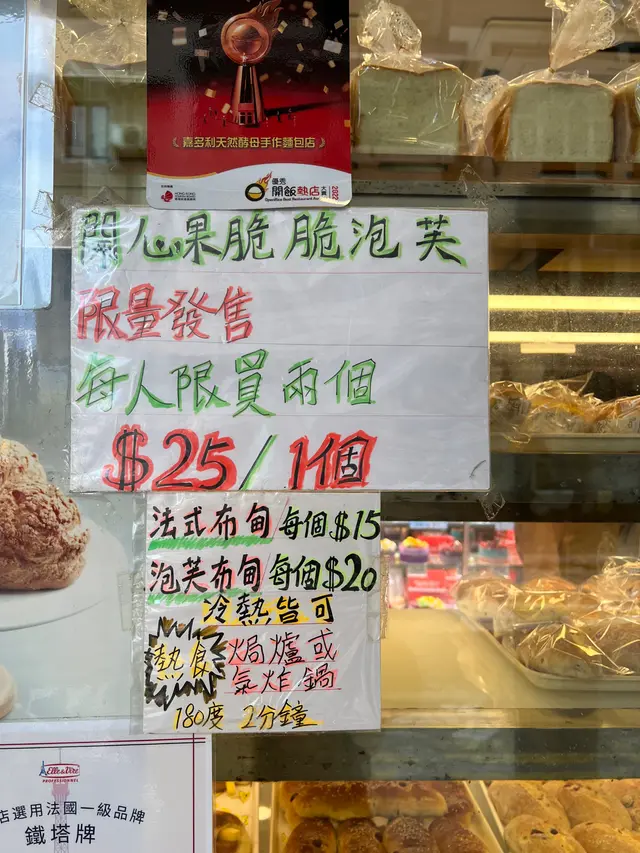 嘉多利天然酵母手作麵包店
優秀
開飯熱店
大賞
開心果脆脆泡芙
限量發售
每人限買兩個
$25/1個
法式布甸每個$15
泡芙布甸每個$20
冷熱皆可
熱食
焗爐或
氣炸鍋
180度 2分鐘
Elle&Vire
PROFESSIONNEL
店選用法國一級品牌
鐵塔牌